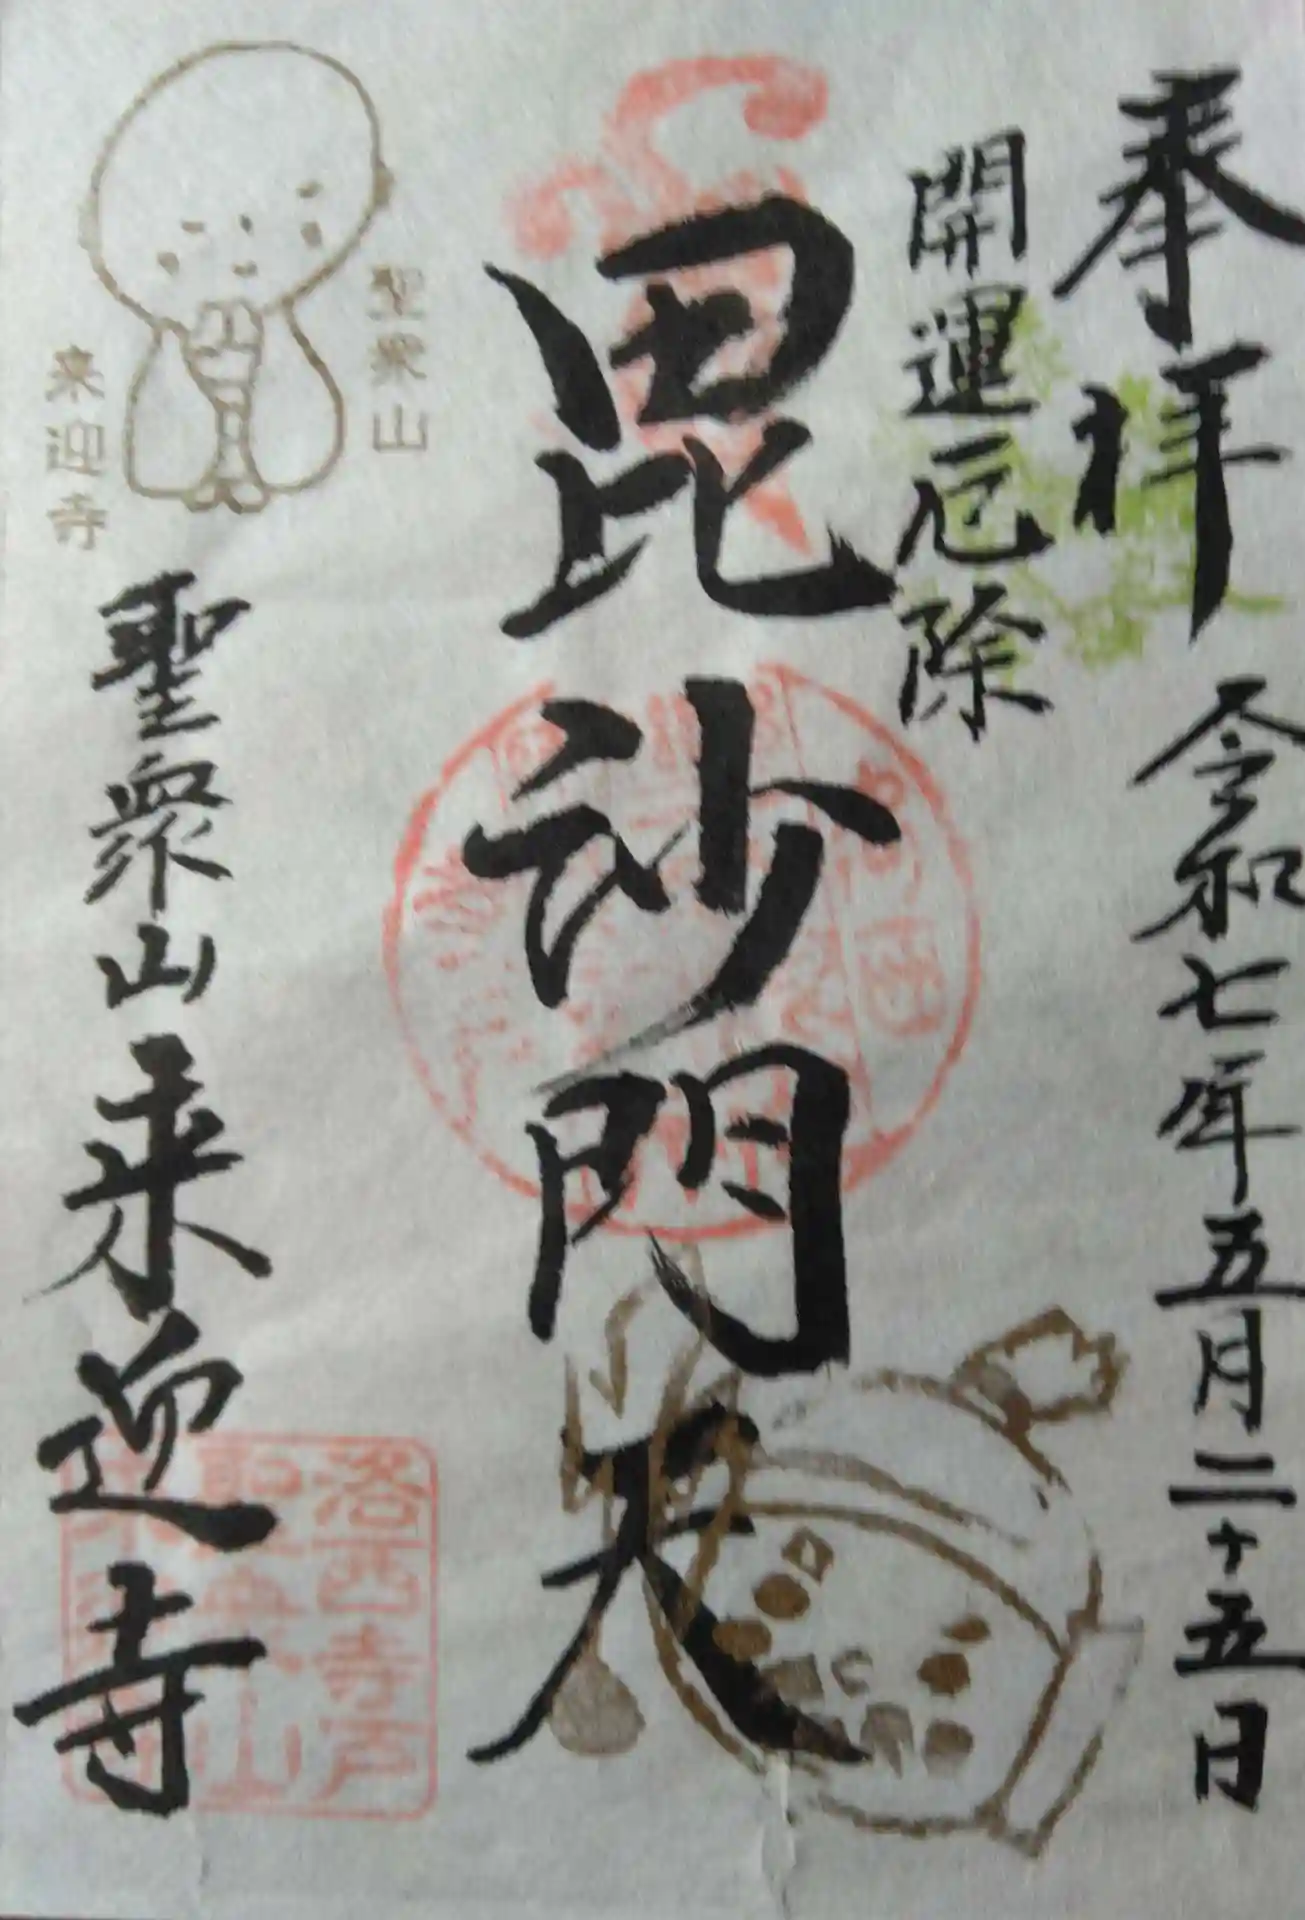 奉拝
令和七年五月二十五日
開運厄除
毘沙門天
聖衆山
来迎寺
聖衆山来迎寺
洛西寺戸
聖衆山
来迎寺